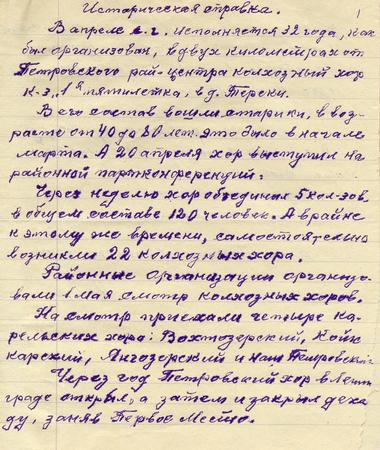 1
Историческая справка.
В апреле с.г. исполняется 32 года, как
был организован, в двух километрах от
Петровского рай-центра колхозный хор
к-з, 1я пятилетка, в д. Терски.
В его состав вошли старики, в воз-
расте от 40 до 80 лет. это было в начале
марта. А 20 апреля хор выступил на
районной партконференции:
Через неделю хор объединил 5 кол-зов,
в общем составе 120 человек. А в райне
к этому же времени, самостоятельно
возникли 22 колхозных хора.
Районные организации организо-
вали 1 мая смотр колхозных хоров.
На смотр приехали четыре ка-
рельских хора: Вохтозерский, Койк
карский, Янгозерский и наш Петровский.
Через год Петровский хор в Ленин
граде открыл, а затем и закрыл дека
ду, заняв Первое Место.